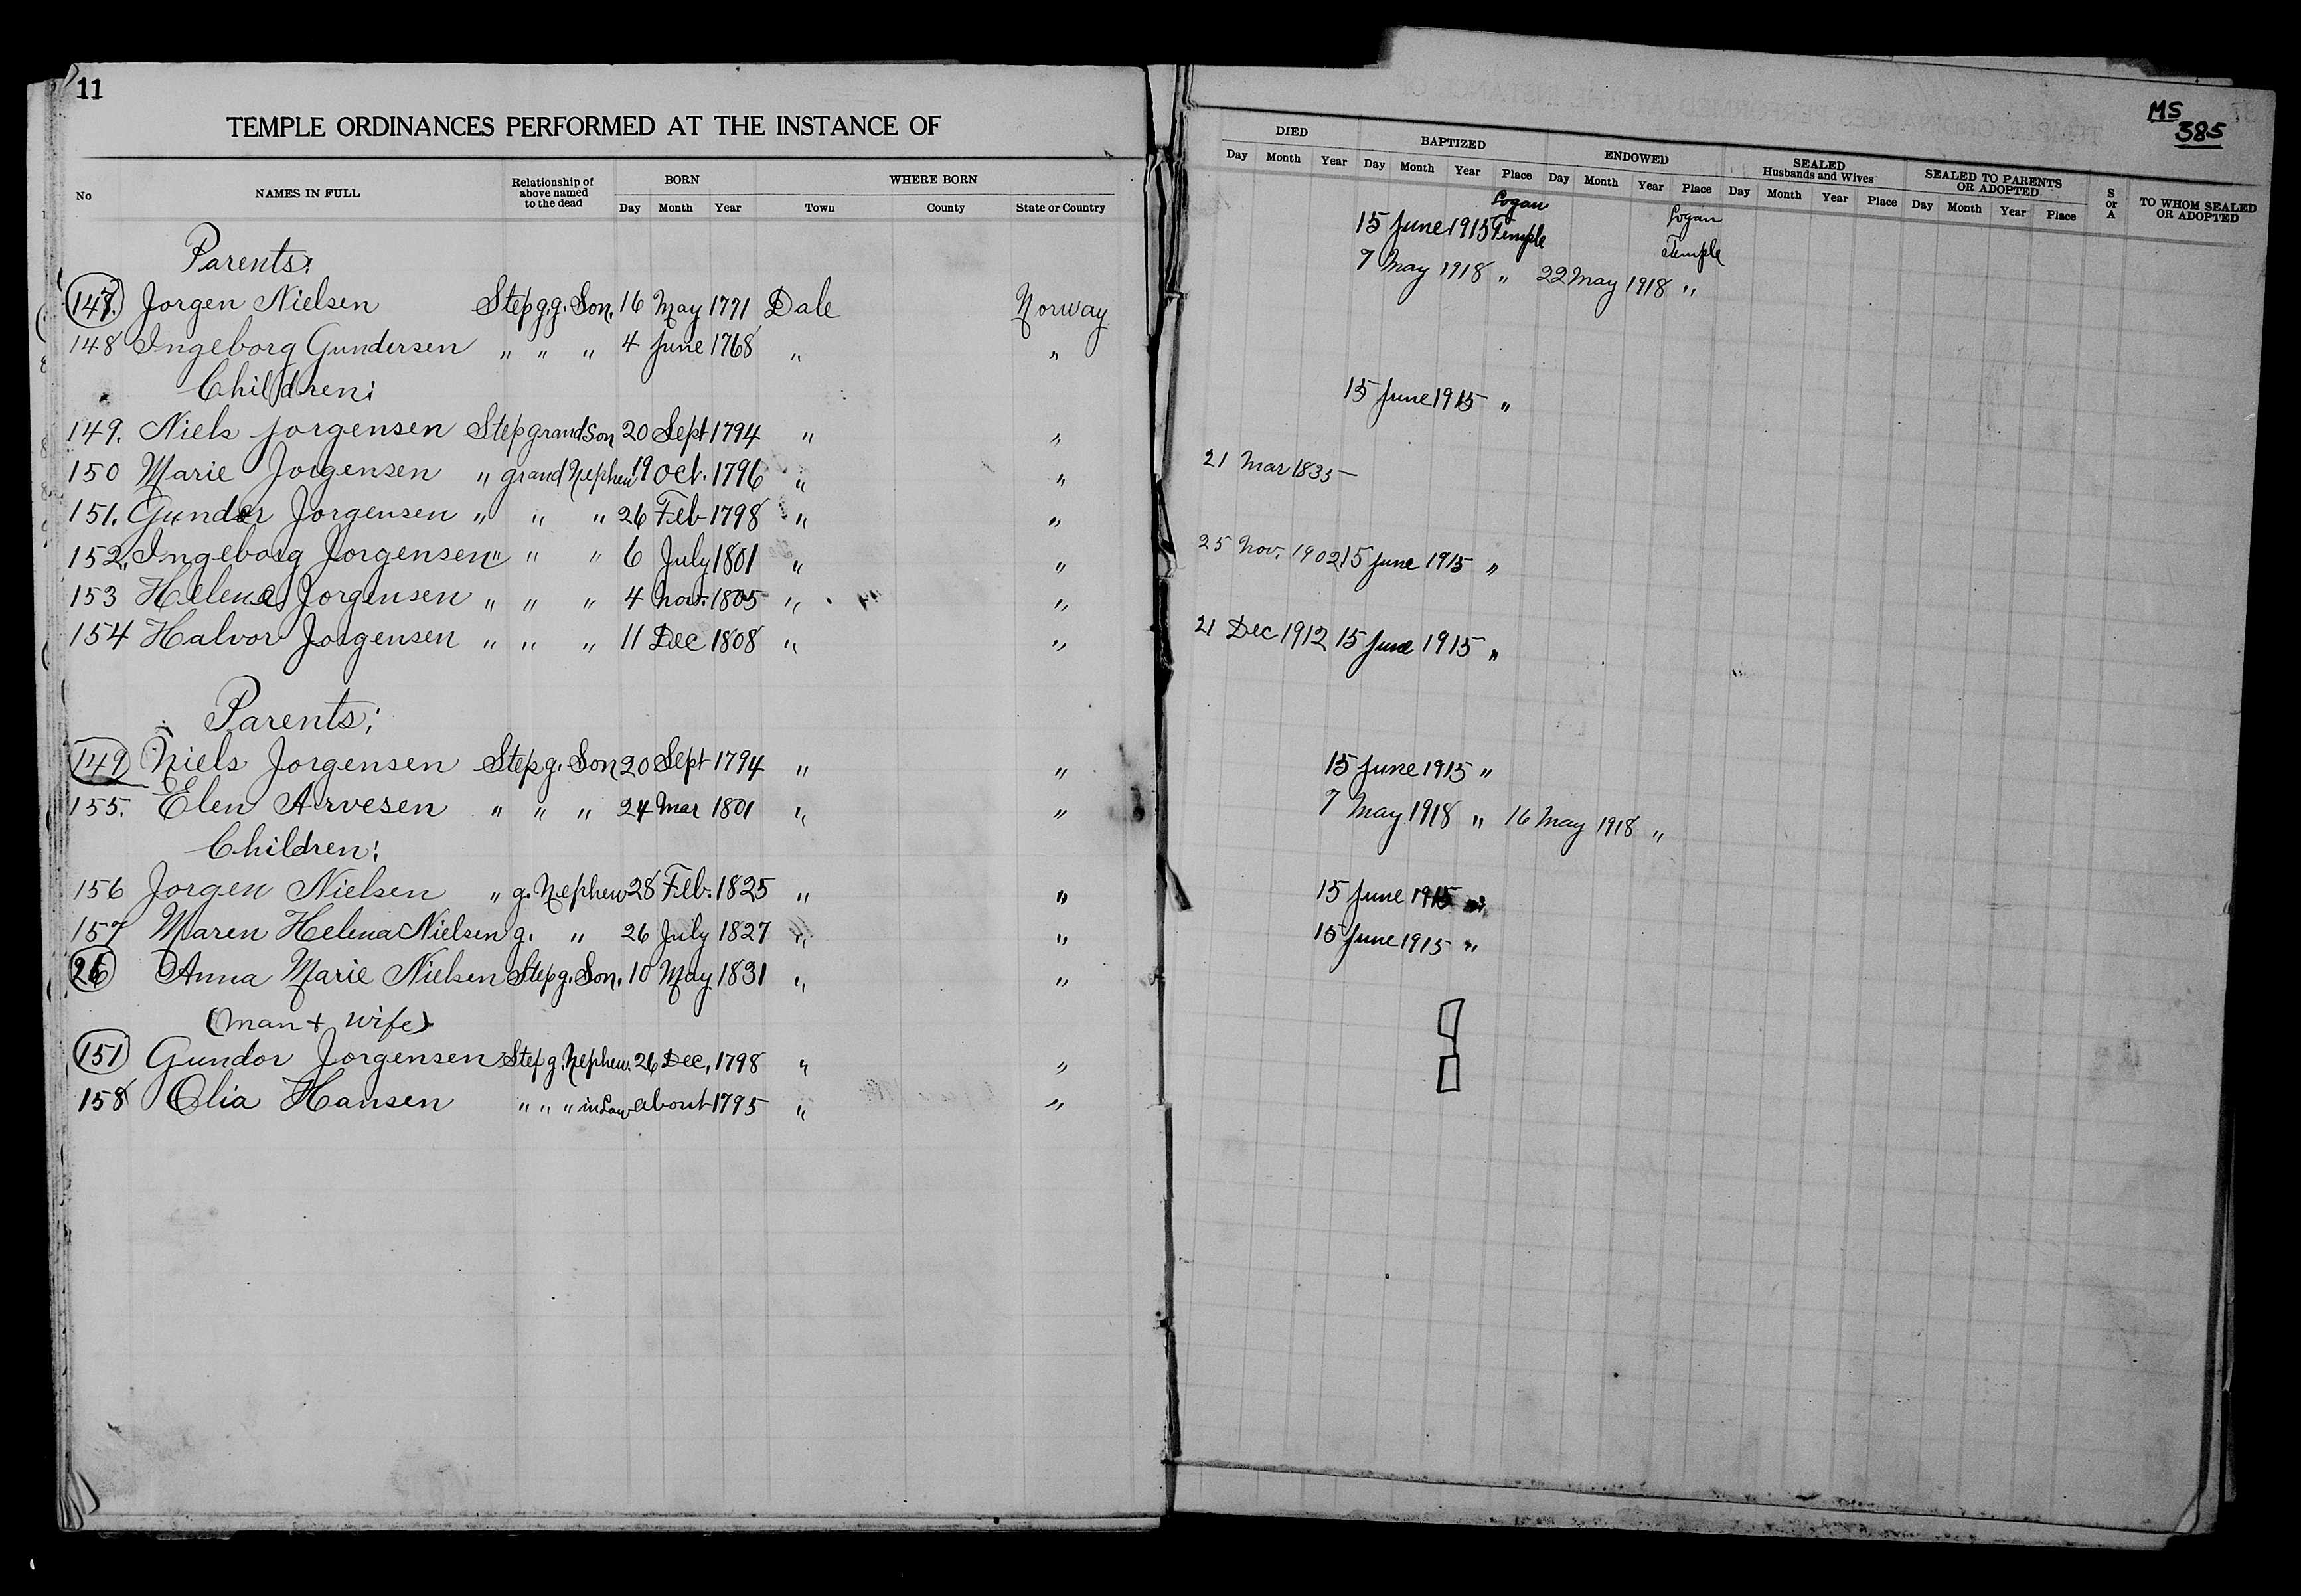 11
TEMPLE ORDINANCES PERFORMED AT THE INSTANCE OF
No NAMES IN FULL Relationship of above named to the dead BORN Day Month Year WHERE BORN Town County State or Country
Parents:
147. Jorgen Nielsen Step g.g. Son. 16 May 1771 Dale Norway
148 Ingeborg Gundersen " " " 4 June 1768 " "
Children:
149. Niels Jorgensen Step grandson 20 Sept 1794 " "
150 Marie Jorgensen " grand Nephew 19 Oct. 1796 " "
151. Gunder Jorgensen " " " 26 Feb 1798 " "
152. Ingeborg Jorgensen " " " 6 July 1801 " "
153 Helene Jorgensen " " " 4 Nov. 1805 " "
154 Halvor Jorgensen " " " 11 Dec 1808 " "
Parents;
149 Niels Jorgensen Step g. Son 20 Sept 1794 " "
155. Elen Arvesen " " " 24 Mar 1801 " "
Children:
156 Jorgen Nielsen " g. Nephew 28 Feb. 1825 " "
157 Maren Helena Nielsen g. " 26 July 1827 " "
26 Anna Marie Nielsen Step g. Son. 10 May 1831 " "
(Man + Wife)
151 Gundor Jorgensen Step g. Nephew. 26 Dec, 1798 " "
158 Olia Hansen " " " in Law about 1795 " "
MS
385
DIED Day Month Year BAPTIZED Day Month Year Place ENDOWED Day Month Year Place SEALED Husbands and Wives Day Month Year Place SEALED TO PARENTS OR ADOPTED Day Month Year Place S or A TO WHOM SEALED OR ADOPTED
15 June 1915 Logan Temple Logan Temple
7 May 1918 " 22 May 1918 "
15 June 1915 "
21 Mar 1835
25 Nov. 1902 15 June 1915 "
21 Dec 1912 15 June 1915 "
15 June 1915 "
7 May 1918 " 16 May 1918 "
15 June 1915 "
15 June 1915 "